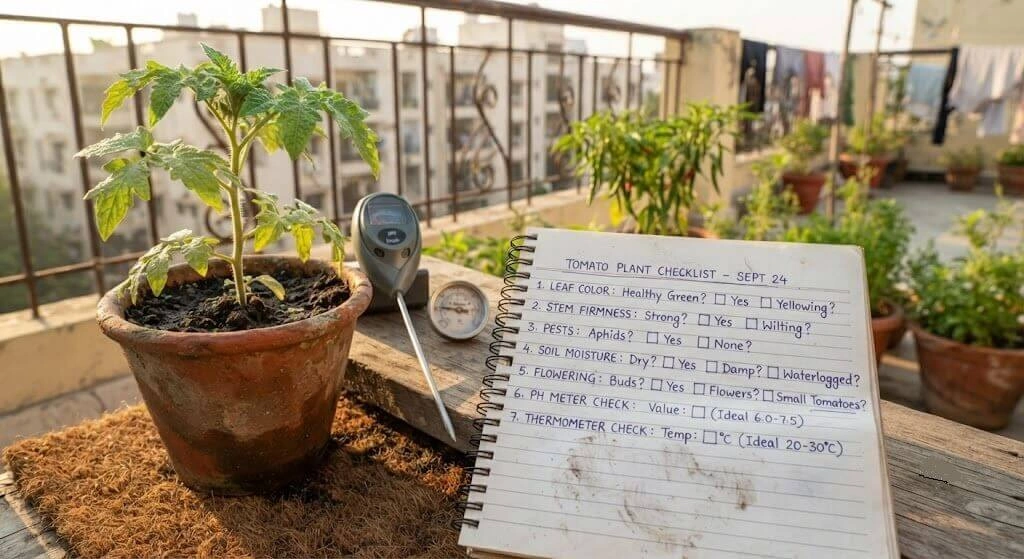 TOMATO PLANT CHECKLIST - SEPT 24
1. LEAF COLOR: Healthy Green? ☐ Yes ☐ Yellowing?
2. STEM FIRMNESS: Strong? ☐ Yes ☐ Wilting?
3. PESTS: Aphids? ☐ Yes ☐ None?
4. SOIL MOISTURE: Dry? ☐ Yes ☐ Damp? ☐ Waterlogged?
5. FLOWERING: Buds? ☐ Yes ☐ Flowers? ☐ Small Tomatoes?
6. PH METER CHECK: Value: ☐ (Ideal 6.0-7.5)
7. THERMOMETER CHECK: Temp: ☐°C (Ideal 20-30°C)